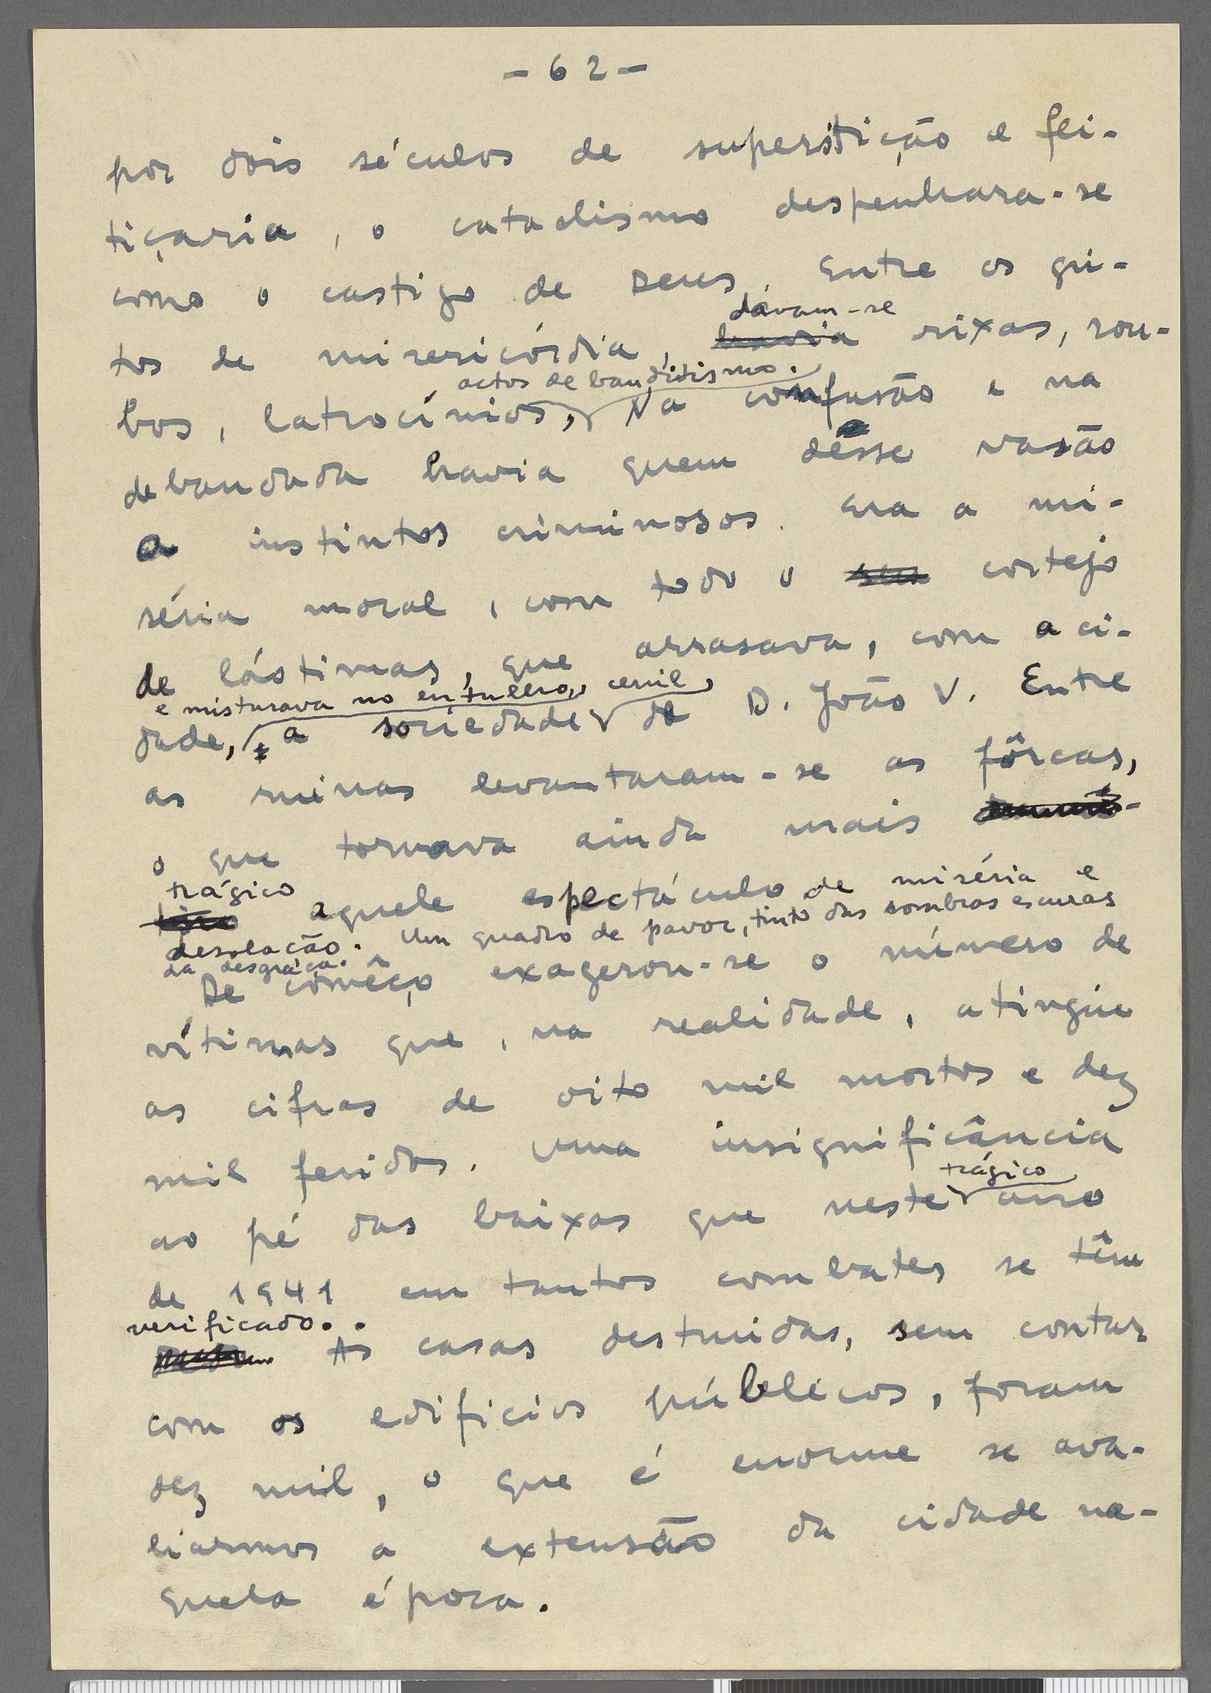 - 62 -
por dois séculos de superstição e fei-
tiçaria, o cataclismo despenhara-se
como o castigo de Deus. Entre os gri-
dávam-se
tos de misericórdia, havia rixas, rou-
actos de banditismo.
bos, latrocínios, Na confusão e na
debandada havia quem désse vasão
a instintos criminosos. Era a mi-
séria moral, com todo o seu cortejo
de lástimas, que arrasava, com a ci-
e misturava no entulho, cenil
dade, e a sociedade de D. João V. Entre
as ruinas levantaram-se as fôrcas,
o que tornava ainda mais
trágico aquele espectáculo de miséria e
desolação. Um quadro de pavor, tinto das sombras escuras
da desgraça.
De comêço exagerou-se o número de
vítimas que, na realidade, atingiu
as cifras de oito mil mortos e dez
mil feridos. Uma insignificância
trágico
ao pé das baixas que neste ano
de 1941 em tantos combates se têm
verificado.
As casas destruidas, sem contar
com os edificios públicos, foram
dez mil, o que é enorme se ava-
liarmos a extensão da cidade na-
quela época.